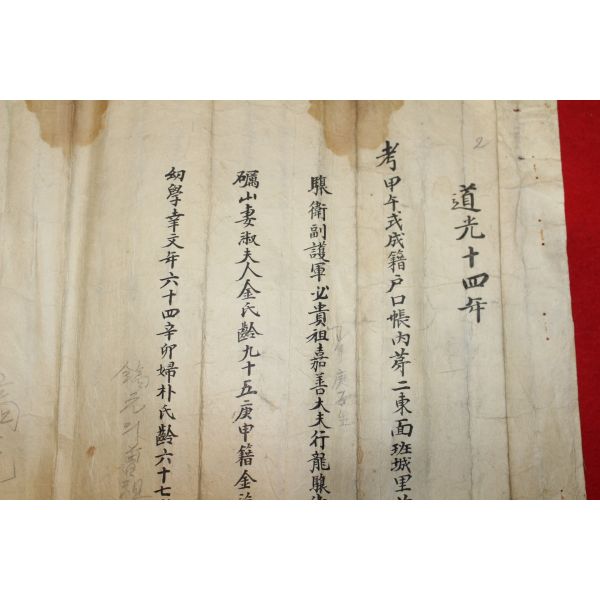 道光十四年
考甲午式成籍戶口帳內苐二東面班城里
驤衛副護軍必貴祖嘉善大夫行龍驤衛
礪山妻淑夫人金氏齡九十五庚申籍金
幼學幸文年六十四辛卯婦朴氏齡六十七